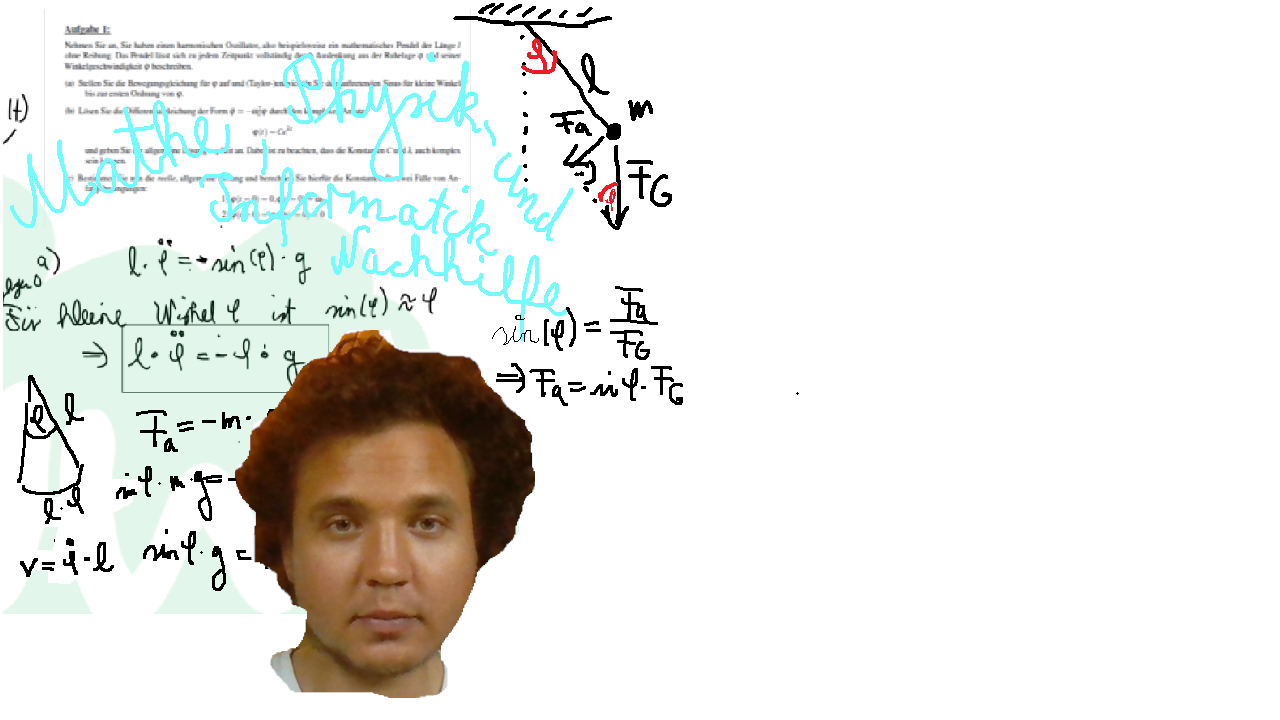 Aufgabe 1:
Nehmen Sie an, Sie haben einen harmonischen Oszillator, also beispielsweise ein mathematisches Pendel der Länge l
ohne Reibung. Das Pendel lässt sich zu jedem Zeitpunkt vollständig durch Auslenkung aus der Ruhelage φ und seiner
Winkelgeschwindigkeit φ̇ beschreiben.
(a) Stellen Sie die Bewegungsgleichung für φ auf und (Taylor-) Sie den auftretenden Sinus für kleine Winkel
bis zur ersten Ordnung von φ.
(b) Lösen Sie die Differentialgleichung der Form φ̈ = −ω₀²φ durch den
φ(t) = Ce^{λt}
und geben Sie die allgemeine an. Dabei ist zu beachten, dass die Konstanten C und λ auch komplex
sein können.
Sie nun die reelle, allgemeine und berechnen Sie hierfür die Konstanten für zwei Fälle von An-
Mathe, Physik, und
Informatik
Nachhilfe
(t)
φ
l
m
Fa
FG
φ
a)
l · φ̈ = - sin(φ) · g
Für kleine Winkel φ ist sin(φ) ≈ φ
⇒ l · φ̈ = - φ · g
sin(φ) = Fa / FG
⇒ Fa = sin φ · FG
φ l
l · φ
Fa = -m ·
sin φ · m · g = -
v = φ̇ · l
sin φ · g =